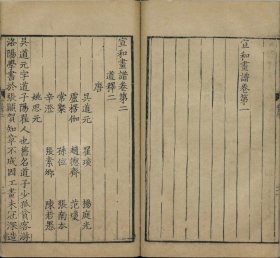 宣和畫譜卷第一
宣和畫譜卷第二
道釋二
唐
吳道元 翟琰 楊庭光
盧楞伽 趙德齊 范瓊
常粲 孫位 張南本
辛澄 張素卿 陳若愚
姚思元
吳道元字道子陽翟人也舊名道子少孤貧客游
洛陽學書於張顛賀知章不成因工畫未冠深造